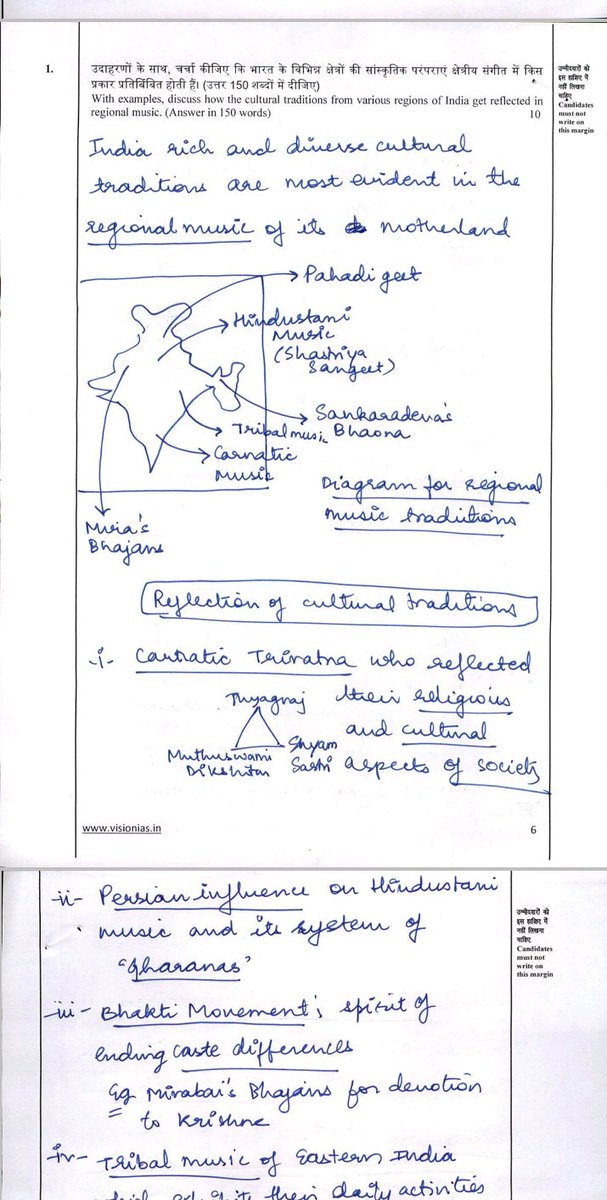 1. उदाहरणों के साथ, चर्चा कीजिए कि भारत के विभिन्न क्षेत्रों की सांस्कृतिक परंपराएं क्षेत्रीय संगीत में किस
प्रकार प्रतिबिंबित होती हैं। (उत्तर 150 शब्दों में दीजिए)
With examples, discuss how the cultural traditions from various regions of India get reflected in
regional music. (Answer in 150 words) 10
उम्मीदवारों को
इस हाशिए में
नहीं लिखना
चाहिए
Candidates
must not
write on
this margin
India rich and diverse cultural
traditions are most evident in the
regional music of its motherland
Pahadi geet
Hindustani
Music
(Shastriya
Sangeet)
Sankaradeva's
Bhaona
Tribal music
Carnatic
Music
Mira's
Bhajans
Diagram for regional
music traditions
Reflection of cultural traditions
-i- Carnatic Triratna who reflected
Thyagraj their religious
and cultural
Muthuswami Dikshitar Shyam Sastri aspects of society
www.visionias.in 6
-ii- Persian influence on Hindustani
music and its system of
"Gharanas"
उम्मीदवारों को
इस हाशिए में
नहीं लिखना
चाहिए
Candidates
must not
write on
this margin
-iii- Bhakti Movement's spirit of
ending caste differences
Eg Mirabai's Bhajans for devotion
to Krishna
-iv- Tribal music of Eastern India
their daily activities